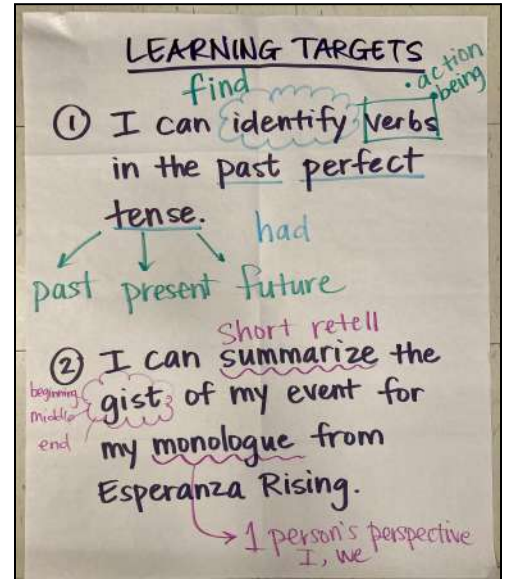 LEARNING TARGETS
find
• action
• being
① I can identify verbs
in the past perfect
tense.
had
past present future
short retell
② I can summarize the
beginning
middle
end
gist of my event for
my monologue from
Esperanza Rising.
1 person's perspective
I, we